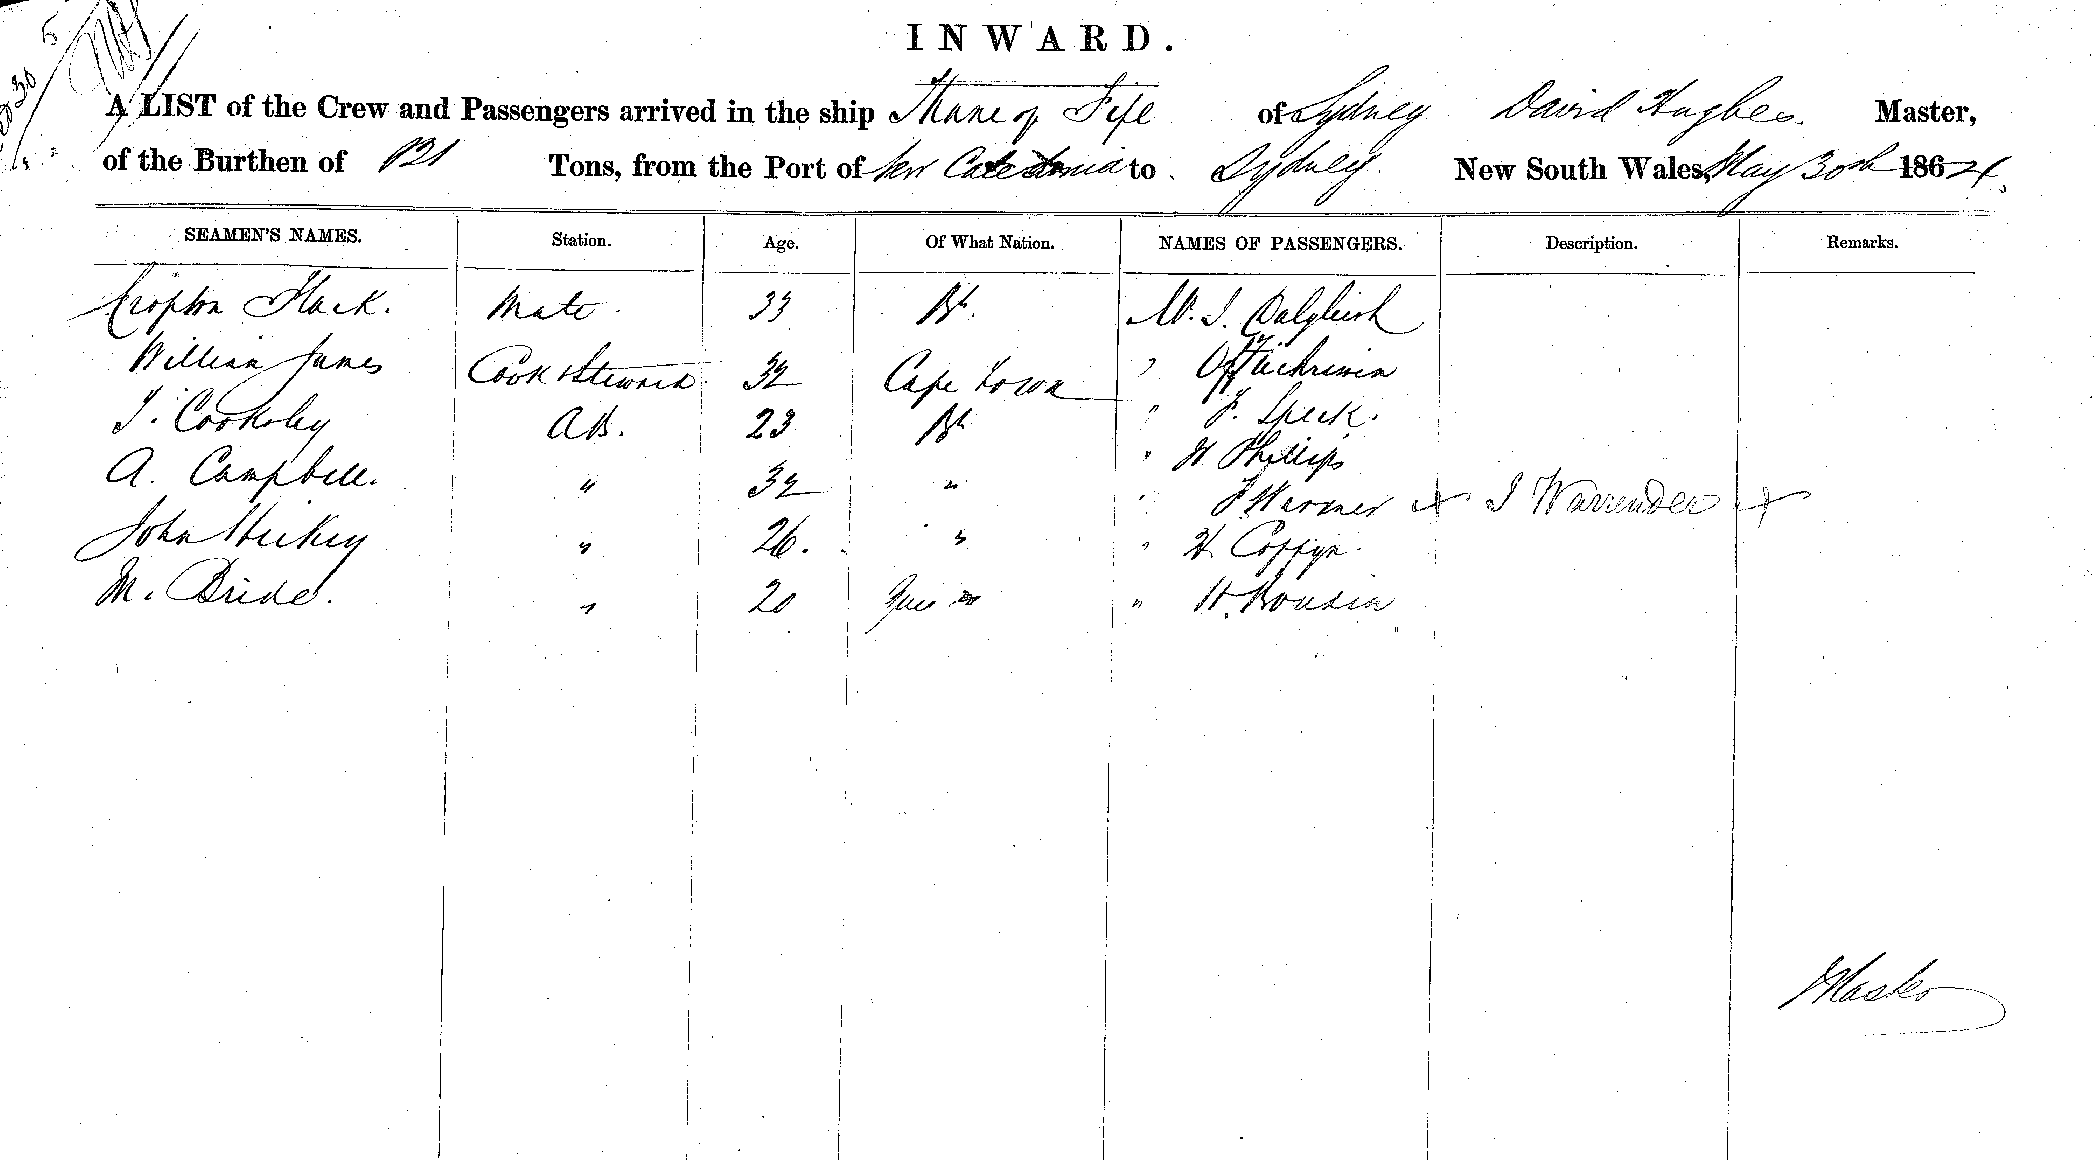 INWARD.
A LIST of the Crew and Passengers arrived in the ship Thane of Fife of Sydney David Hughes. Master,
of the Burthen of 121 Tons, from the Port of New Caledonia to Sydney. New South Wales, May 30th 1864.
SEAMEN'S NAMES. Station. Age. Of What Nation. NAMES OF PASSENGERS. Description. Remarks.
Flack. Mate. 33 Bh. Mr. J. Dalgleish
William James Cook & Steward 32 Cape Town "
T. Cooksley A B. 23 Bh " F. Speck.
A. Campbell. " 32 " " H Phillips
John Hickey " 26. " " J Warmer + J Warrender +
M. Bride. " 20 " H Coffyn.
" H.